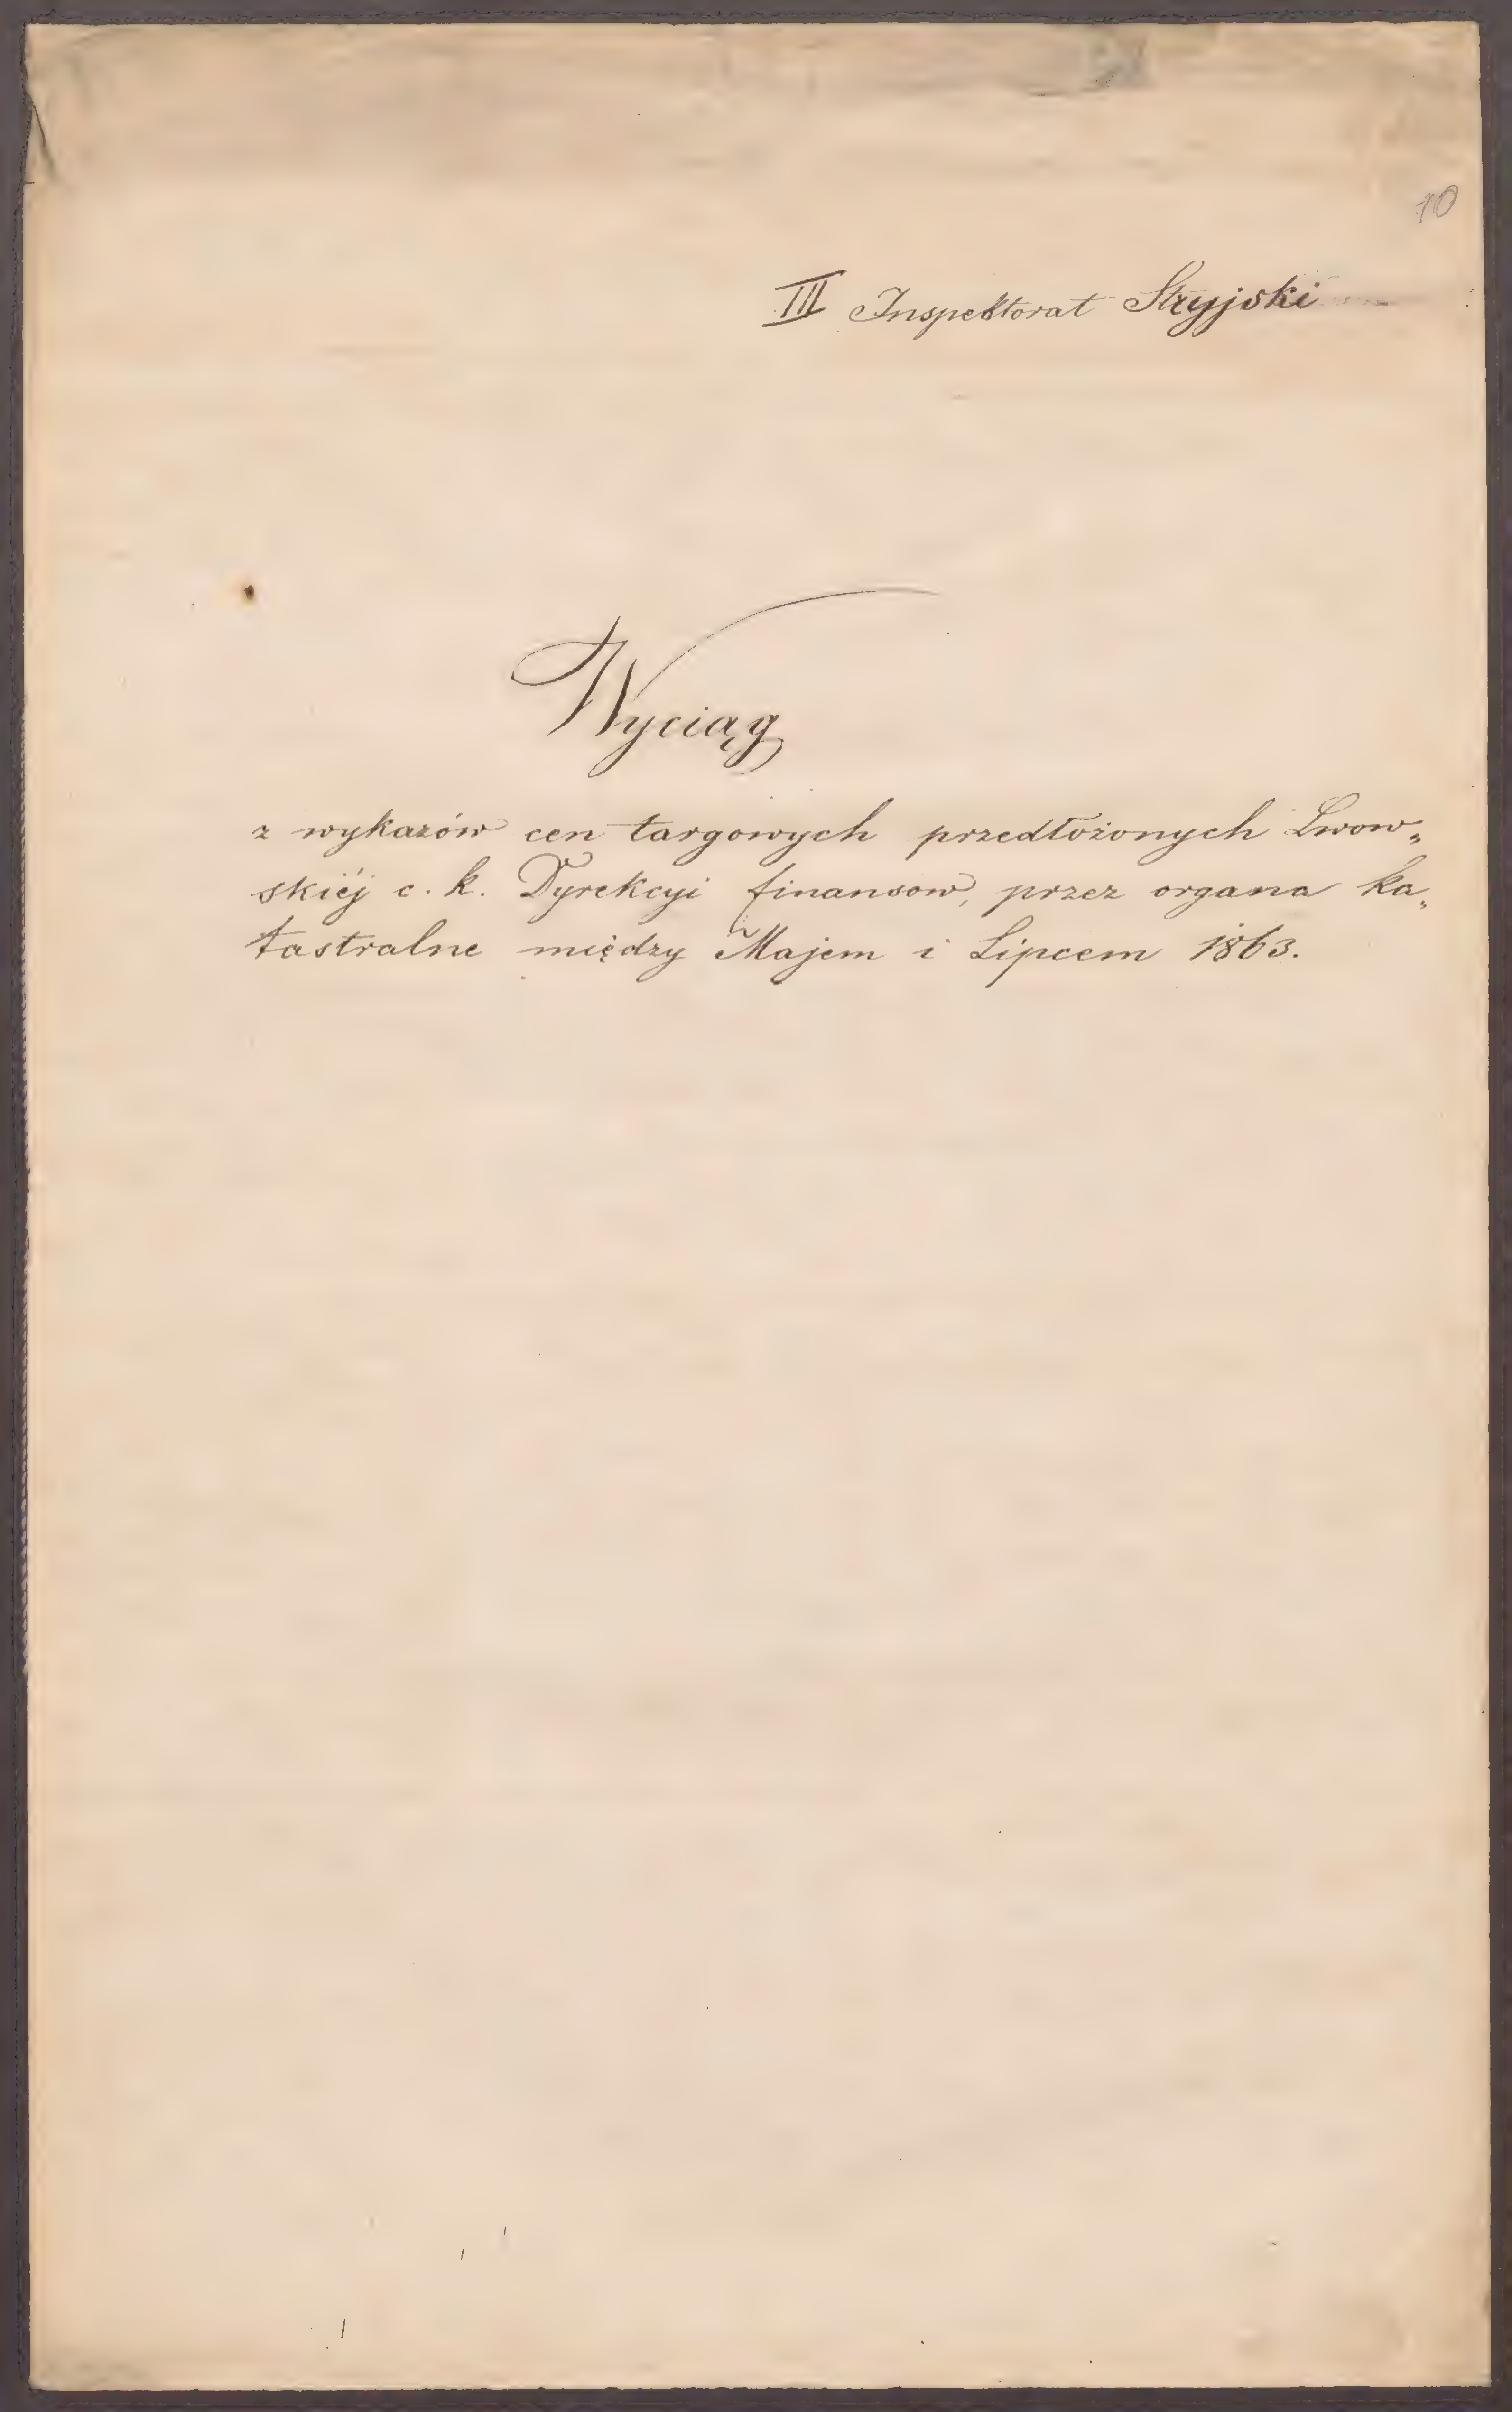 10
III Inspektorat Stryjski
Wyciąg
z wykazów cen targowych przedłożonych Lwow„
skiéj c. k. Dyrekcyi finansow, przez organa ka„
tastralne między Majem i Lipcem 1863.